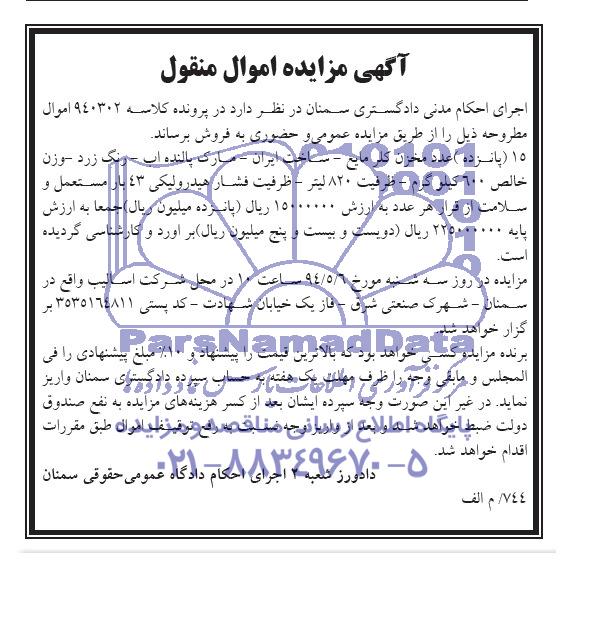 آگهی مزایده اموال منقول
اجرای احکام مدنی دادگستری سمنان در نظر دارد در پرونده کلاسه ۹۴۰۳۰۲ اموال
مطروحه ذیل را از طریق مزایده عمومی و حضوری به فروش برساند.
۱۵ (پانزده)عدد مخزن کلر مایع - ساخت ایران - مارک پالنده اب - رنگ زرد -وزن
خالص ۶۰۰ کیلو گرم - ظرفیت ۸۲۰ لیتر - ظرفیت فشار هیدرولیکی ۴۳ بار مستعمل و
سلامت از قرار هر عدد به ارزش ۱۵۰۰۰۰۰۰ ریال (پانزده میلیون ریال)جمعا به ارزش
پایه ۲۲۵۰۰۰۰۰۰ ریال (دویست و بیست و پنج میلیون ریال)بر اورد و کارشناسی گردیده
است.
مزایده در روز سه شنبه مورخ ۹۴/۵/۶ ساعت ۱۰ در محل شرکت اسالیب واقع در
سمنان - شهرک صنعتی شرق - فاز یک خیابان شهادت - کد پستی ۳۵۳۵۱۶۴۸۱۱ بر
گزار خواهد شد.
برنده مزایده کسی خواهد بود که بالاترین قیمت را پیشنهاد و ۱۰٪ مبلغ پیشنهادی را فی
المجلس و مابقی وجه را ظرف مهلت یک هفته به حساب سپرده دادگستری سمنان واریز
نماید. در غیر این صورت وجه سپرده ایشان بعد از کسر هزینه‌های مزایده به نفع صندوق
دولت ضبط خواهد شد و بعد از واریز وجه نسبت به رفع توقیف اموال طبق مقررات
اقدام خواهد شد.
دادورز شعبه ۲ اجرای احکام دادگاه عمومی حقوقی سمنان
۷۴۴/ م الف
ParsNamadData
پایگاه اطلاع رسانی مناقصه و مزایده
۰۲۱-۸۸۳۴۹۶۷۰-۵